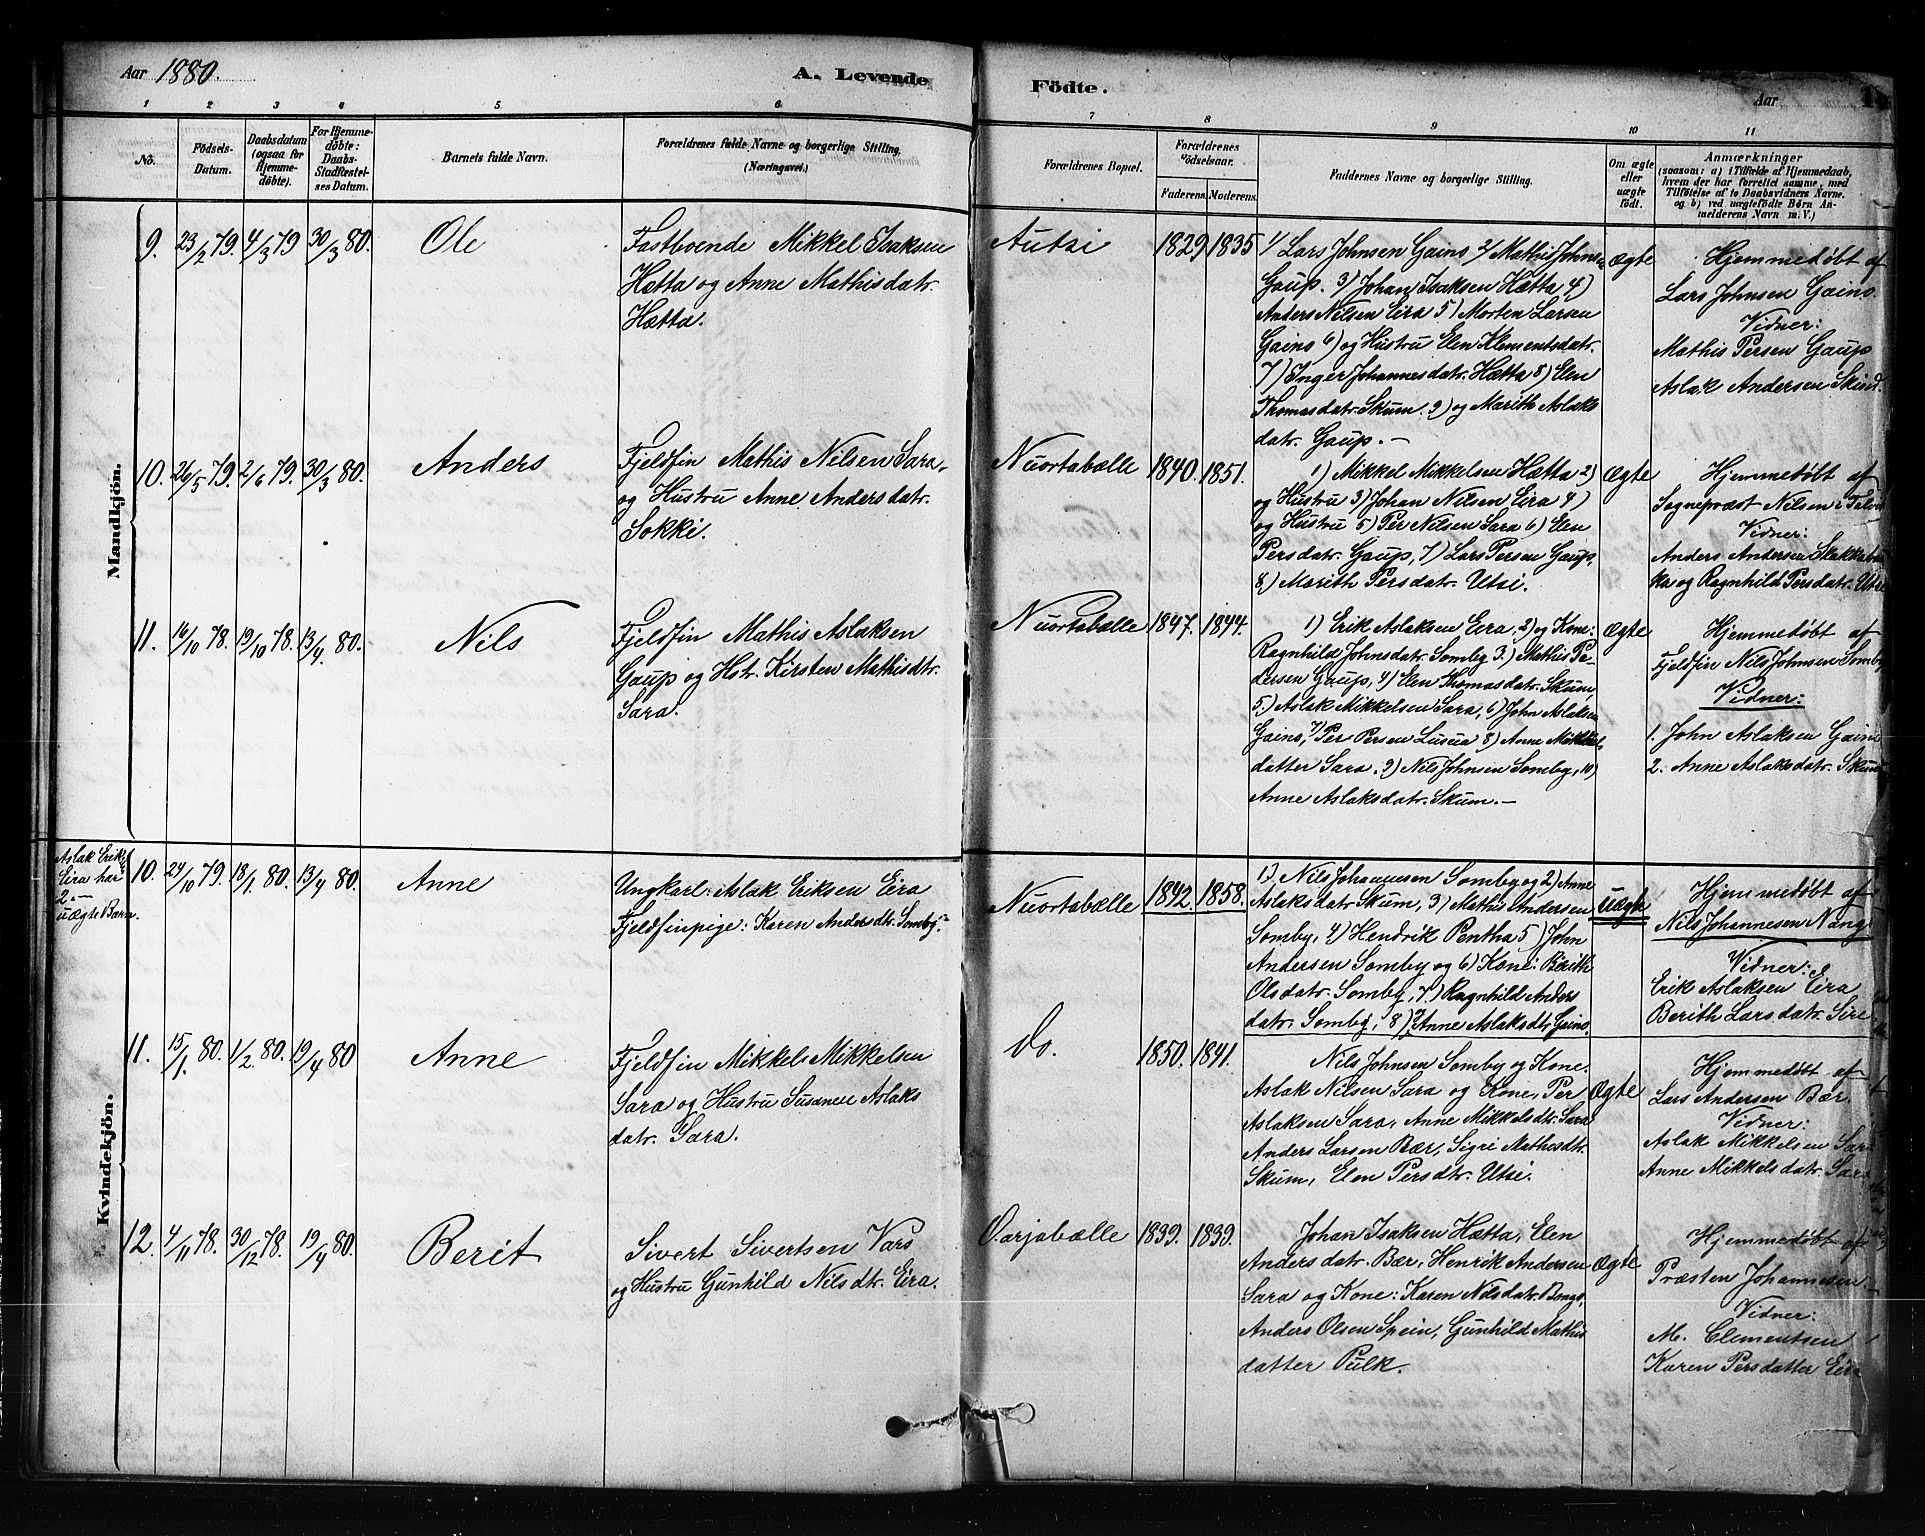 Aar 1880.
A. Levende
Födte.
Aar
1 2 3 4 5 6 7 8 9 10 11
No.
Födsels-
Datum.
Daabsdatum
(ogsaa for
Hjemme-
döbte).
For Hjemme-
döbte:
Daabs-
Stadfæstel-
ses Datum.
Barnets fulde Navn.
Forældrenes fulde Navne og borgerlige Stilling.
(Næringsvei.)
Forældrenes Bopæl.
Forældrenes
Födselsaar.
Faderens.
Moderens.
Faddernes Navne og borgerlige Stilling.
Om ægte
eller
uægte
født.
Anmærkninger
(saasom: a) i Tilfælde af Hjemmedaab,
hvem der har forrettet samme, med
Tilföielse af to Daabsvidners Navne.
og b) ved uægtefödte Børn An-
melderens Navn m. V.)
Mandkjön.
9. 23/2 79. 4/3 79 30/3 80. Ole
Fastboende Mikkel Isaksen
Hætta og Anne Mathisdatr.
Hætta.
Autsi 1829 1835
1) Lars Johnsen Gaino 2) Mathis Johnsen
Gaup. 3) Johan Isaksen Hætta 4)
Anders Nilsen Eira 5) Morten Larsen
Gaino 6) og Hustru Elen Klementsdatr.
7) Inger Johannesdatr. Hætta 8) Elen
Thomasdatr. Skum. 9) og Marith Aslaks
datr. Gaup. —
ægte
Hjemmedøbt af
Lars Johnsen Gaino.
Vidner:
Mathis Persen Gaup
Aslak Andersen
10. 26/5 79. 2/6 79. 30/3 80. Anders
Fjeldfin Mathis Nilsen Sara
og Hustru Anne Andersdatr.
Sokki.
Nuortabælle 1840. 1851.
1) Mikkel Mikkelsen Hætta 2)
og Hustru 3) Johan Nilsen Eira 4)
og Hustru 5) Per Nilsen Sara 6) Elen
Persdatr. Gaup, 7) Lars Persen Gaup,
8) Marith Persdatr. Utsi.
Ægte
Hjemmedøbt af
Sognepræst Nilsen i
Vidner:
Anders Andersen
ka og Ragnhild Persdatr. Utsi
11. 16/10 78. 19/10 78. 13/4 80. Nils
Fjeldfin Mathis Aslaksen
Gaup og Hstr. Kirsten Mathisdtr.
Sara.
Nuortabælle 1847. 1844.
1) Erik Aslaksen Eira, 2) og Kone:
Ragnhild Johnsdatr. Somby 3.) Mathis Pe-
dersen Gaup, 4) Elen Thomasdatr. Skum,
5.) Aslak Mikkelsen Sara, 6) John Aslaksen
Gaino, 7) Per Persen 8) Anne Mikkels-
datter Sara, 9) Nils Johnsen Somby, 10)
Anne Aslaksdatr. Skum. —
Ægte
Hjemmedøbt af
Fjeldfin Nils Johnsen Somby
Vidner:
1. John Aslaksen Gaino
2. Anne Aslaksdatr. Skum
Kvindekjön.
Aslak Eriks.
Eira har
2 —
uægte Barn.
10. 24/10 79. 18/1 80. 13/4 80. Anne
Ungkarl: Aslak Eriksen Eira
Fjeldfinpige: Karen Andersdtr. Somby.
Nuortabælle 1842. 1858.
1). Nils Johannesen Somby og 2) Anne
Aslaksdatr Skum, 3) Mathis Andersen
Somby, 4) Hendrik Pentha 5) John
Andersen Somby og 6) Kone: Berith
Olsdatr. Somby, 7.) Ragnhild Anders
datr. Somby, 8) Anne Aslaksdtr Gaino.
uægte
Hjemmedøbt af
Nils Johannesen
Vidner:
Erik Aslaksen Eira
Berith Larsdatr.
11. 15/1 80. 1/2 80. 19/4 80 Anne
Fjeldfin Mikkel Mikkelsen
Sara og Hustru Susanne Aslaks
datr. Sara.
Do. 1850. 1841.
Nils Johnsen Somby og Kone.
Aslak Nilsen Sara og Kone, Per
Aslaksen Sara, Anne Mikkelsdtr. Sara
Anders Larsen Bær, Sigri Mathisdtr.
Skum, Elen Persdtr. Utsi.
Ægte
Hjemmedøbt af
Lars Andersen Bær.
Vidner:
Aslak Mikkelsen Sara
Anne Mikkelsdatr. Sara
12. 4/11 78. 30/12 78. 19/4 80. Berit
Sivert Sivertsen Vars
og Hustru Gunhild Nilsdtr. Eira.
Oarjabælle 1839. 1839.
Johan Isaksen Hætta, Elen
Andersdatr. Bær, Henrik Andersen
Sara og Kone: Karen Nilsdatr. Bongo,
Anders Olsen Spein, Gunhild Mathis
datter Pulk.
Ægte
Hjemmedøbt af
Præsten Johannesen.
Vidner:
M. Clementsen
Karen Persdatter Eira